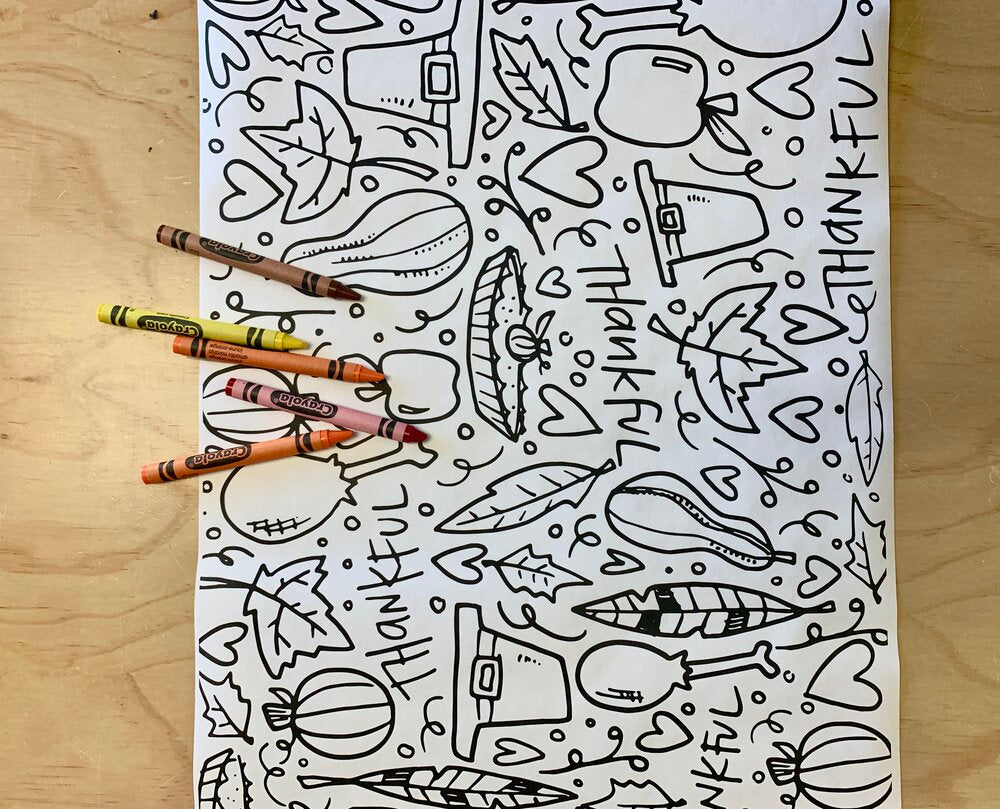 THANKFUL
THankful
THANKFUL
NKFUL
Crayola
Crayola
Crayola
Crayola